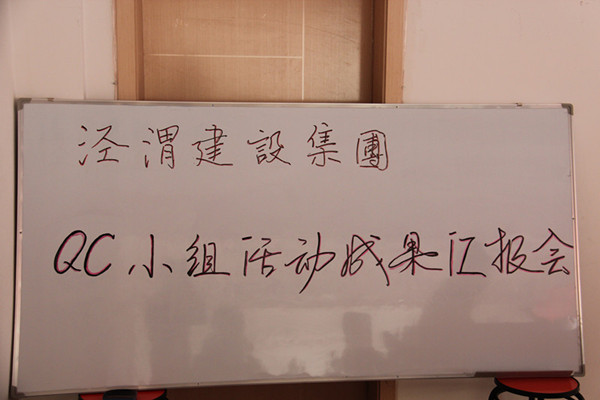 泾渭建設集團
QC小组活动成果汇报会